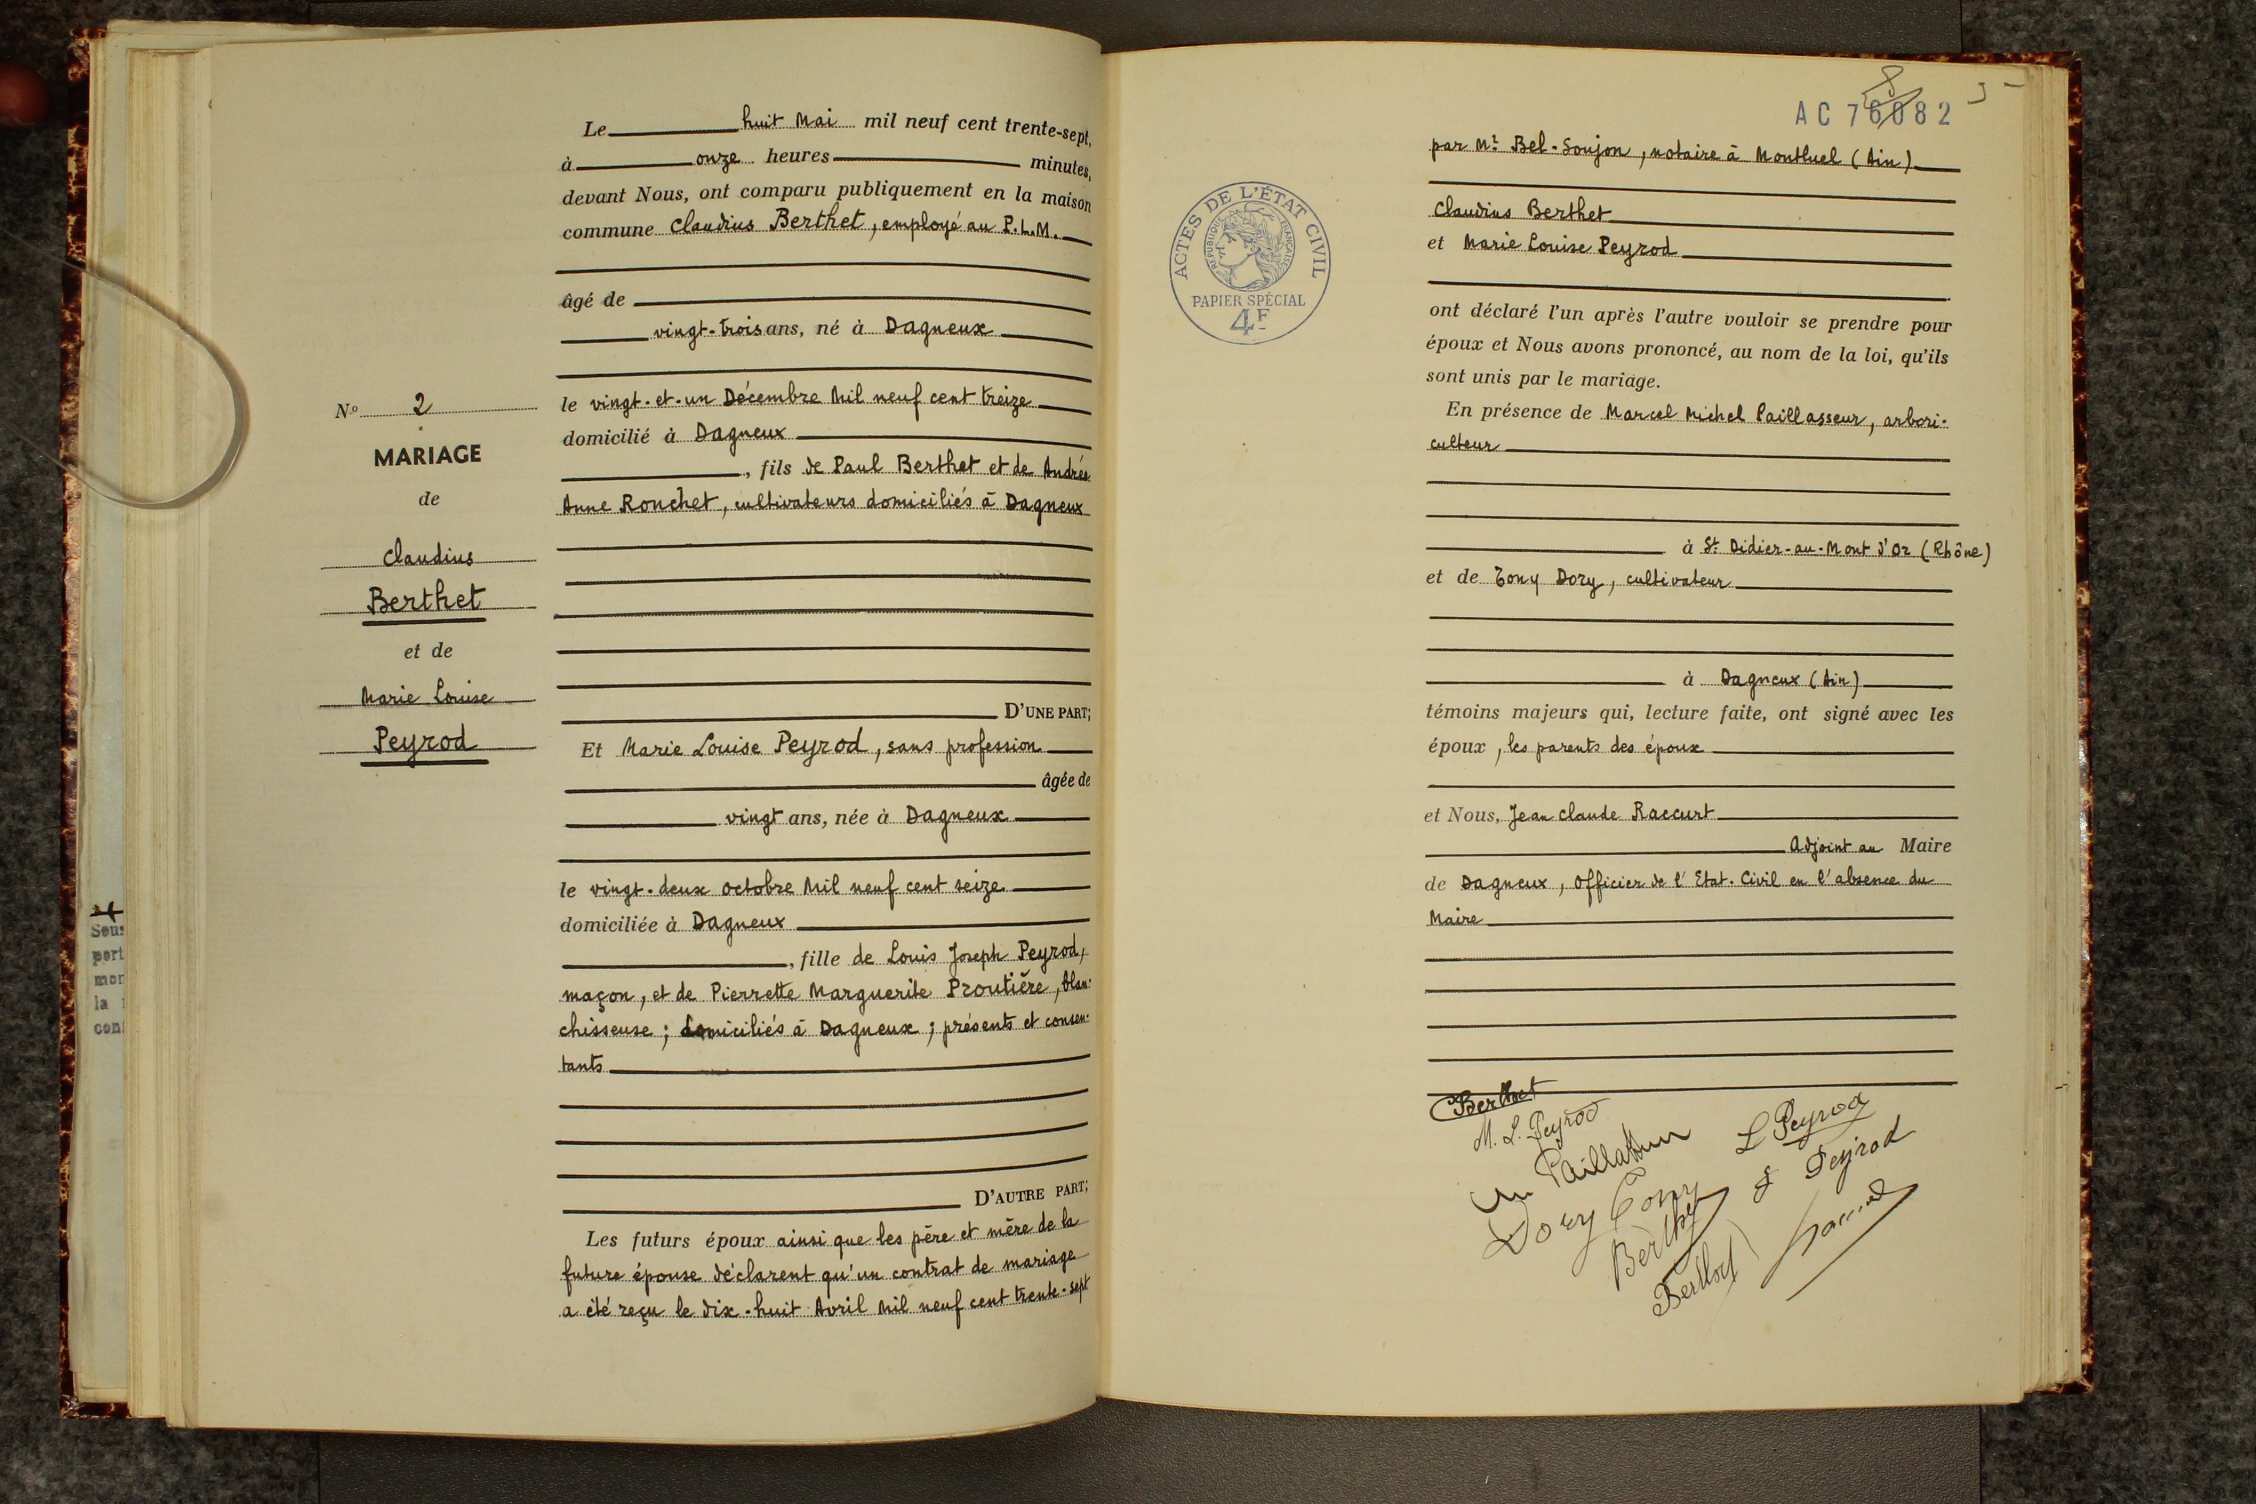 Le huit Mai mil neuf cent trente-sept,
à onze heures minutes,
devant Nous, ont comparu publiquement en la maison
commune Claudius Berthet, employé au P.L.M.
âgé de
vingt-trois ans, né à Dagneux
le vingt-et-un Décembre Mil neuf cent treize
domicilié à Dagneux
, fils de Paul Berthet et de Andrée
Anne Ronchet, cultivateurs domiciliés à Dagneux
D'UNE PART;
Et Marie Louise Peyrod, sans profession
âgée de
vingt ans, née à Dagneux
le vingt-deux octobre Mil neuf cent seize
domiciliée à Dagneux
, fille de Louis Joseph Peyrod,
maçon, et de Pierrette Marguerite Proutière, blan-
chisseuse; domiciliés à Dagneux; présents et consen-
tants
D'AUTRE PART;
Les futurs époux ainsi que les père et mère de la
future épouse déclarent qu'un contrat de mariage
a été reçu le dix-huit Avril Mil neuf cent trente-sept
No 2
MARIAGE
de
Claudius
Berthet
et de
Marie Louise
Peyrod
Sous
port
mon
la
con
AC 76082
par Me Bel-Soujon, notaire à Montluel (Ain)
Claudius Berthet
et Marie Louise Peyrod
ont déclaré l'un après l'autre vouloir se prendre pour
époux et Nous avons prononcé, au nom de la loi, qu'ils
sont unis par le mariage.
En présence de Marcel Michel Paillasseur, arbori-
culteur
à St Didier-au-Mont d'Or (Rhône)
et de Tony Dory, cultivateur
à Dagneux (Ain)
témoins majeurs qui, lecture faite, ont signé avec les
époux, les parents des époux
et Nous, Jean Claude Raccurt
Adjoint au Maire
de Dagneux, Officier de l'Etat-Civil en l'absence du
Maire
ACTES DE L'ÉTAT CIVIL
RÉPUBLIQUE FRANÇAISE
PAPIER SPÉCIAL
4F
CBerthet
M. L. Peyrod
Paillasseur
L Peyrod
Dory Tony
Peyrod
Berthet
Berthet